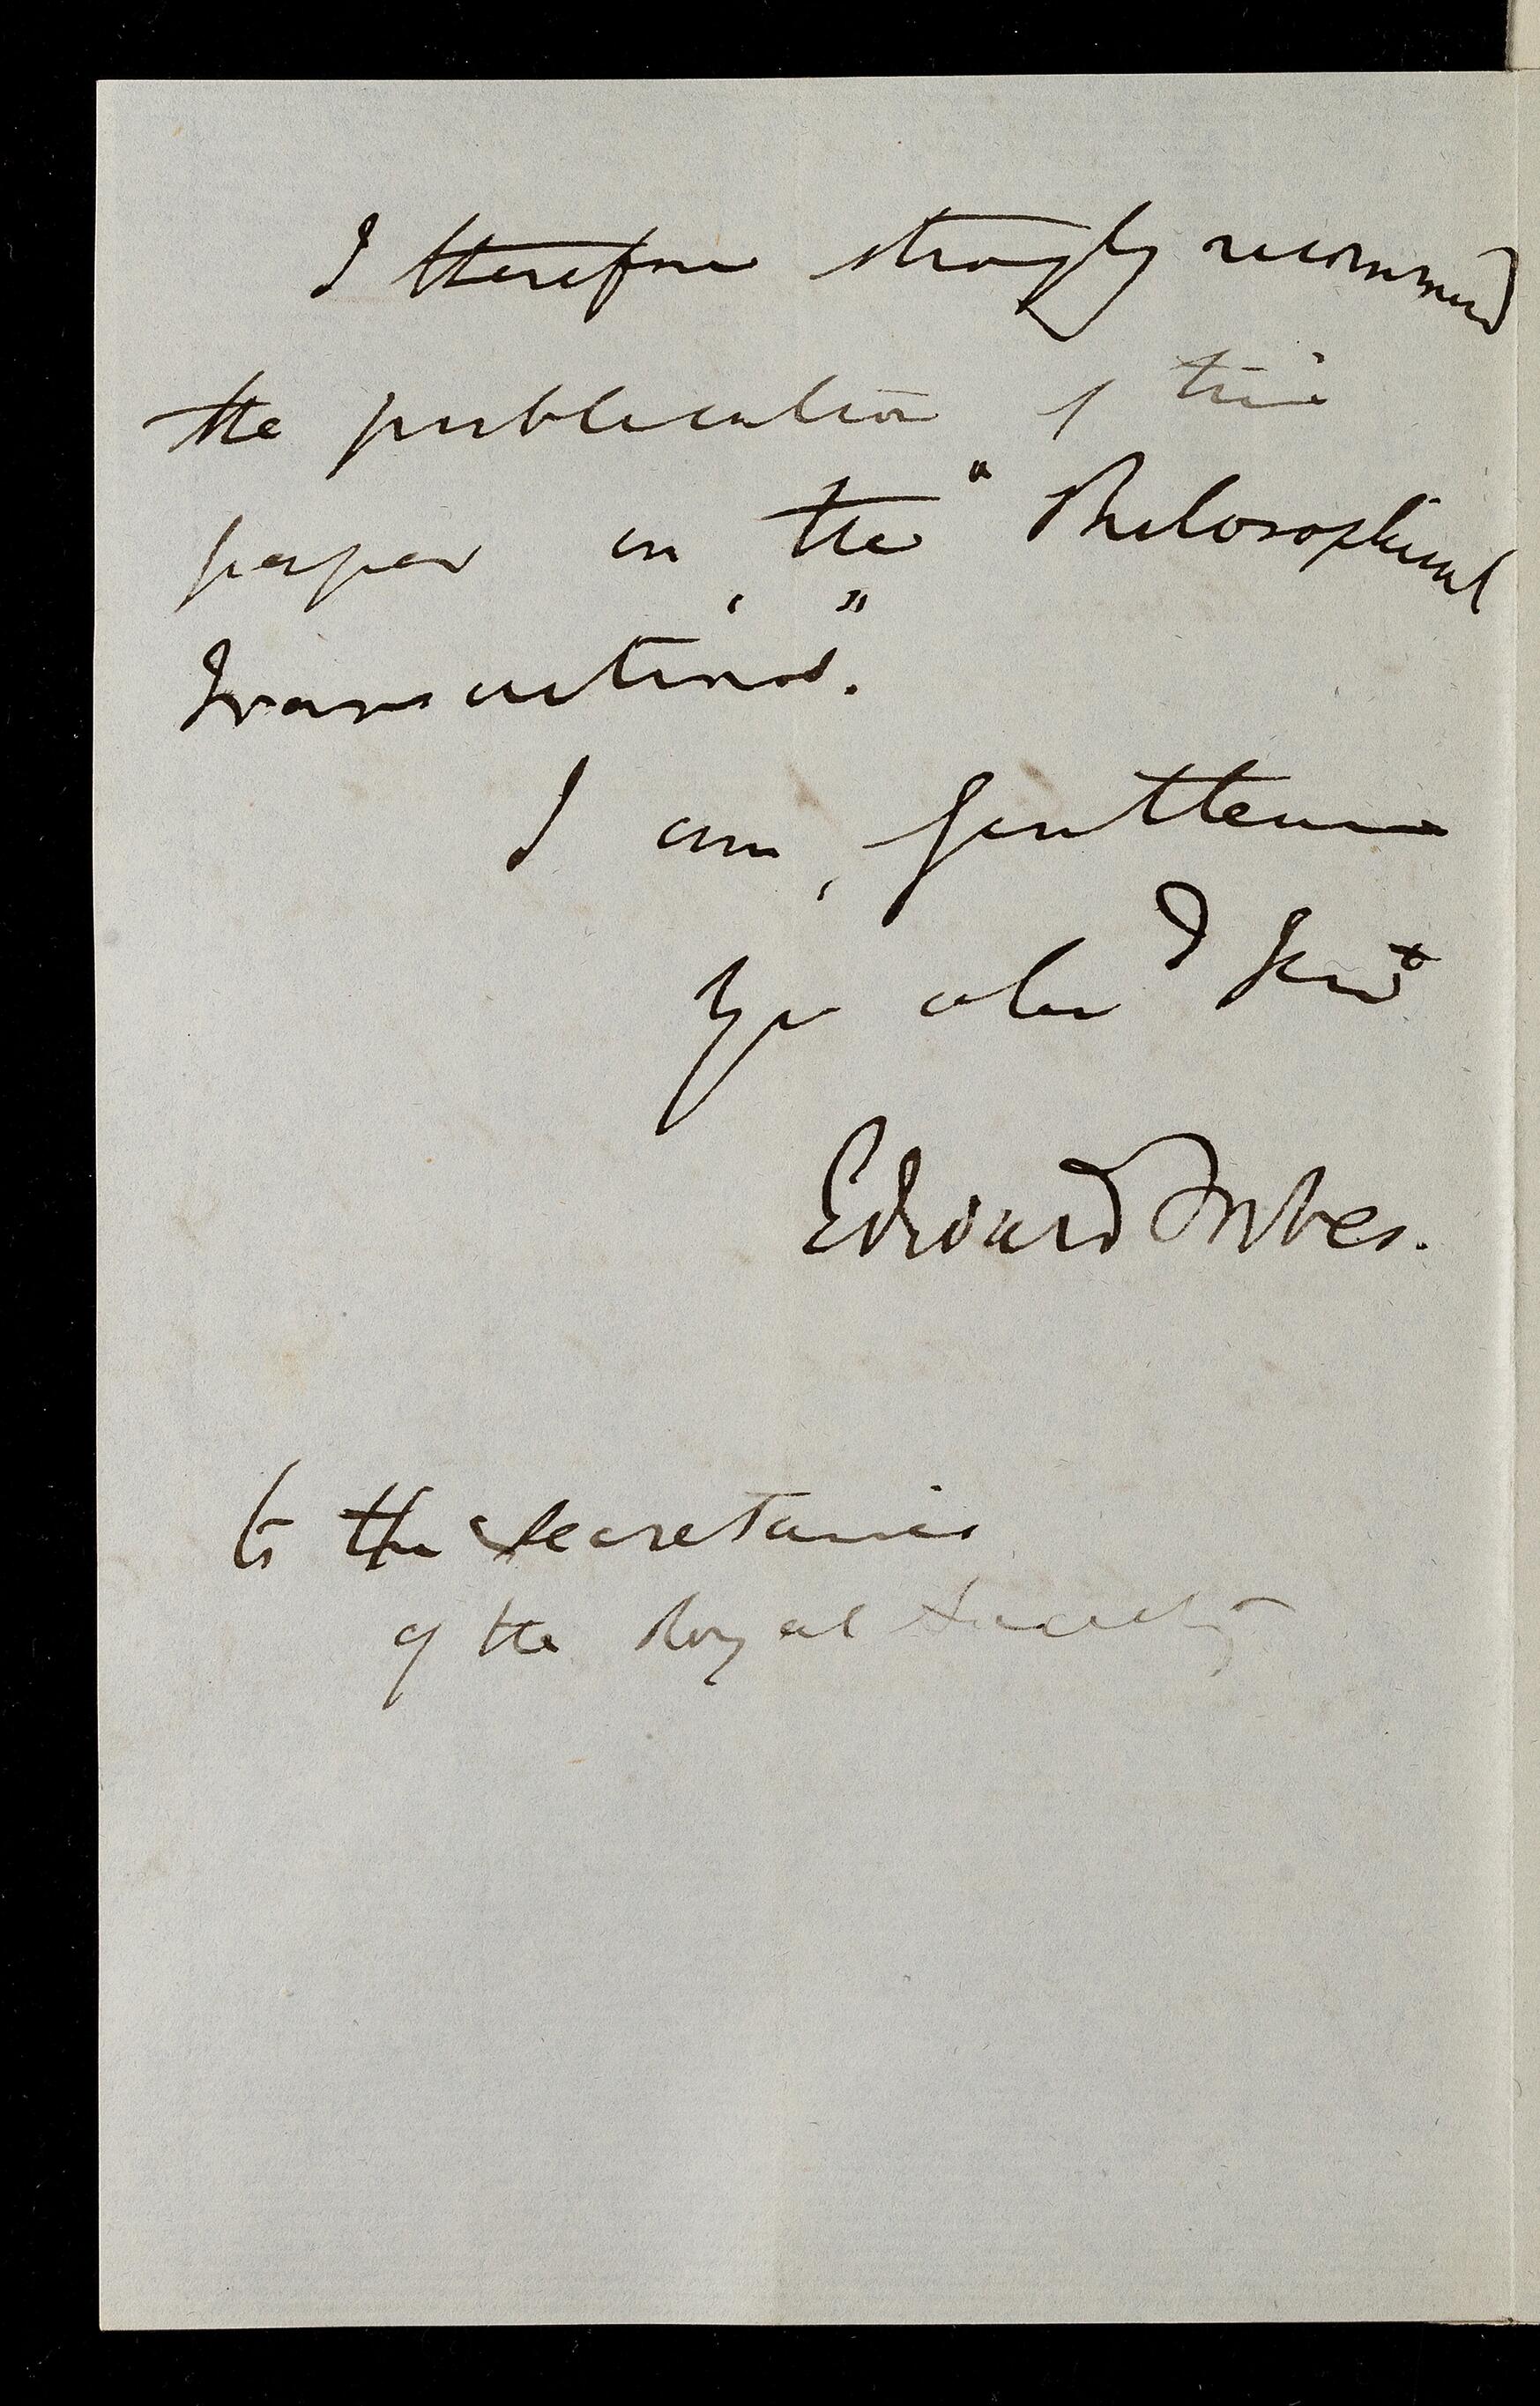 I therefore strongly recommend
the publication of this
paper in the "Philosophical
Transactions".
I am, Gentlemen
Yr obed Servt
Edward Forbes.
To the Secretaries
of the Royal Society